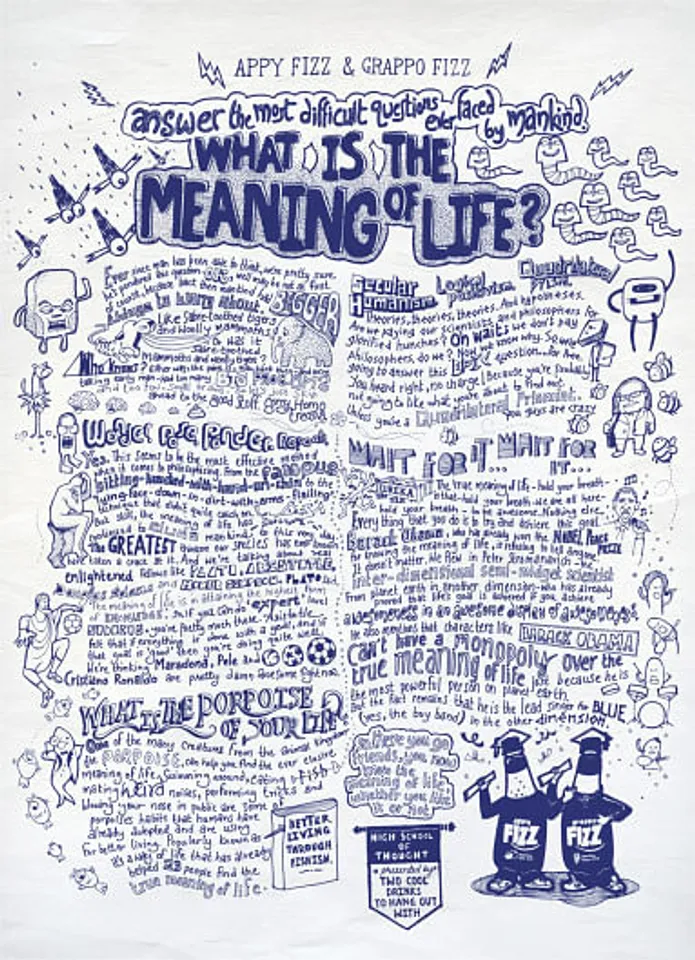 APPY FIZZ & GRAPPO FIZZ
answer the most difficult questions ever faced by mankind.
WHAT IS THE
MEANING OF LIFE?
Ever since man has been able to think, we're pretty sure
he's pondered this question
BIGGER
things to worry about.
Like Sabre-toothed tigers
and Woolly Mammoths
Or was it
Sabre-toothed
Mammoths and woolly tigers?
Who knows?
early man had too many BIG PROBLEMS
ahead to the good stuff.
Wonder Pose Ponder Repeat
Yes. This seems to be the most effective method
when it comes to philosophising. From the famous
sitting-hunched-with-hand-on-chin to the
lying-face-down-in-dirt-with-arms flailing
technique that didn't quite catch on.
But still, the meaning of life has
mankind to this very day.
the GREATEST thinkers our species has ever known
have taken a crack at it. And we're talking about real
enlightened fellows like PLATO, ARISTOTLE,
and PLATO
The meaning of life is in attaining the highest form
of KNOWLEDGE. So, if you can do expert level
SUDOKUS, you're pretty much there. Aristotle
felt that if everything is done with a goal, and
the goal is 'good' then you're doing quite well.
We're thinking Maradona, Pele and
Cristiano Ronaldo are pretty damn awesome right now.
WHAT IS THE PORPOISE
OF YOUR LIFE?
One of the many creatures from the animal kingdom
the PORPOISE, can help you find the ever elusive
meaning of life. Swimming around, eating fish
making weird noises, performing tricks and
blowing your nose in public are some of
porpoise habits that humans have
already adopted and are using
for better living. Popularly known as
it's a way of life that has already
helped 23 people find the
true meaning of life.
BETTER
LIVING
THROUGH
FISHISM.
Secular
Humanism
Logical
positivism
Quadrilateral
Prism
Theories, theories, theories. And hypotheses.
Are we paying our scientists and philosophers for
glorified hunches? Oh wait, we don't pay
philosophers, do we? Now you know why. So we're
going to answer this question...for free.
You heard right, no charge! Because you're probably
not going to like what you're about to find out.
Unless you're a Quadrilateral Prismist.
you guys are crazy
WAIT FOR IT... WAIT FOR
IT...
The true meaning of life - hold your breath -
is that - hold your breath - we are all here -
hold your breath - to be awesome. Nothing else.
Everything that you do is to try and achieve this goal.
Barack Obama, who has already won the NOBEL PEACE PRIZE
for knowing the meaning of life, is refusing to tell anyone.
It doesn't matter. We flew in Peter
inter-dimensional semi-midget scientist
from planet earth in another dimension, who has already
proved that life is best achieved if you display your
awesomeness in an awesome display of awesomeness.
He also mentions that characters like BARACK OBAMA
can't have a monopoly over the
true meaning of life just because he is
the most powerful person on planet earth.
But the fact remains that he is the lead singer for BLUE
(yes, the boy band) in the other dimension.
So there you go
friends, you now
know the
meaning of life
whether you like
it or not.
HIGH SCHOOL
OF
THOUGHT
presented by
TWO COOL
DRINKS
TO HANG OUT
WITH
FIZZ
FIZZ